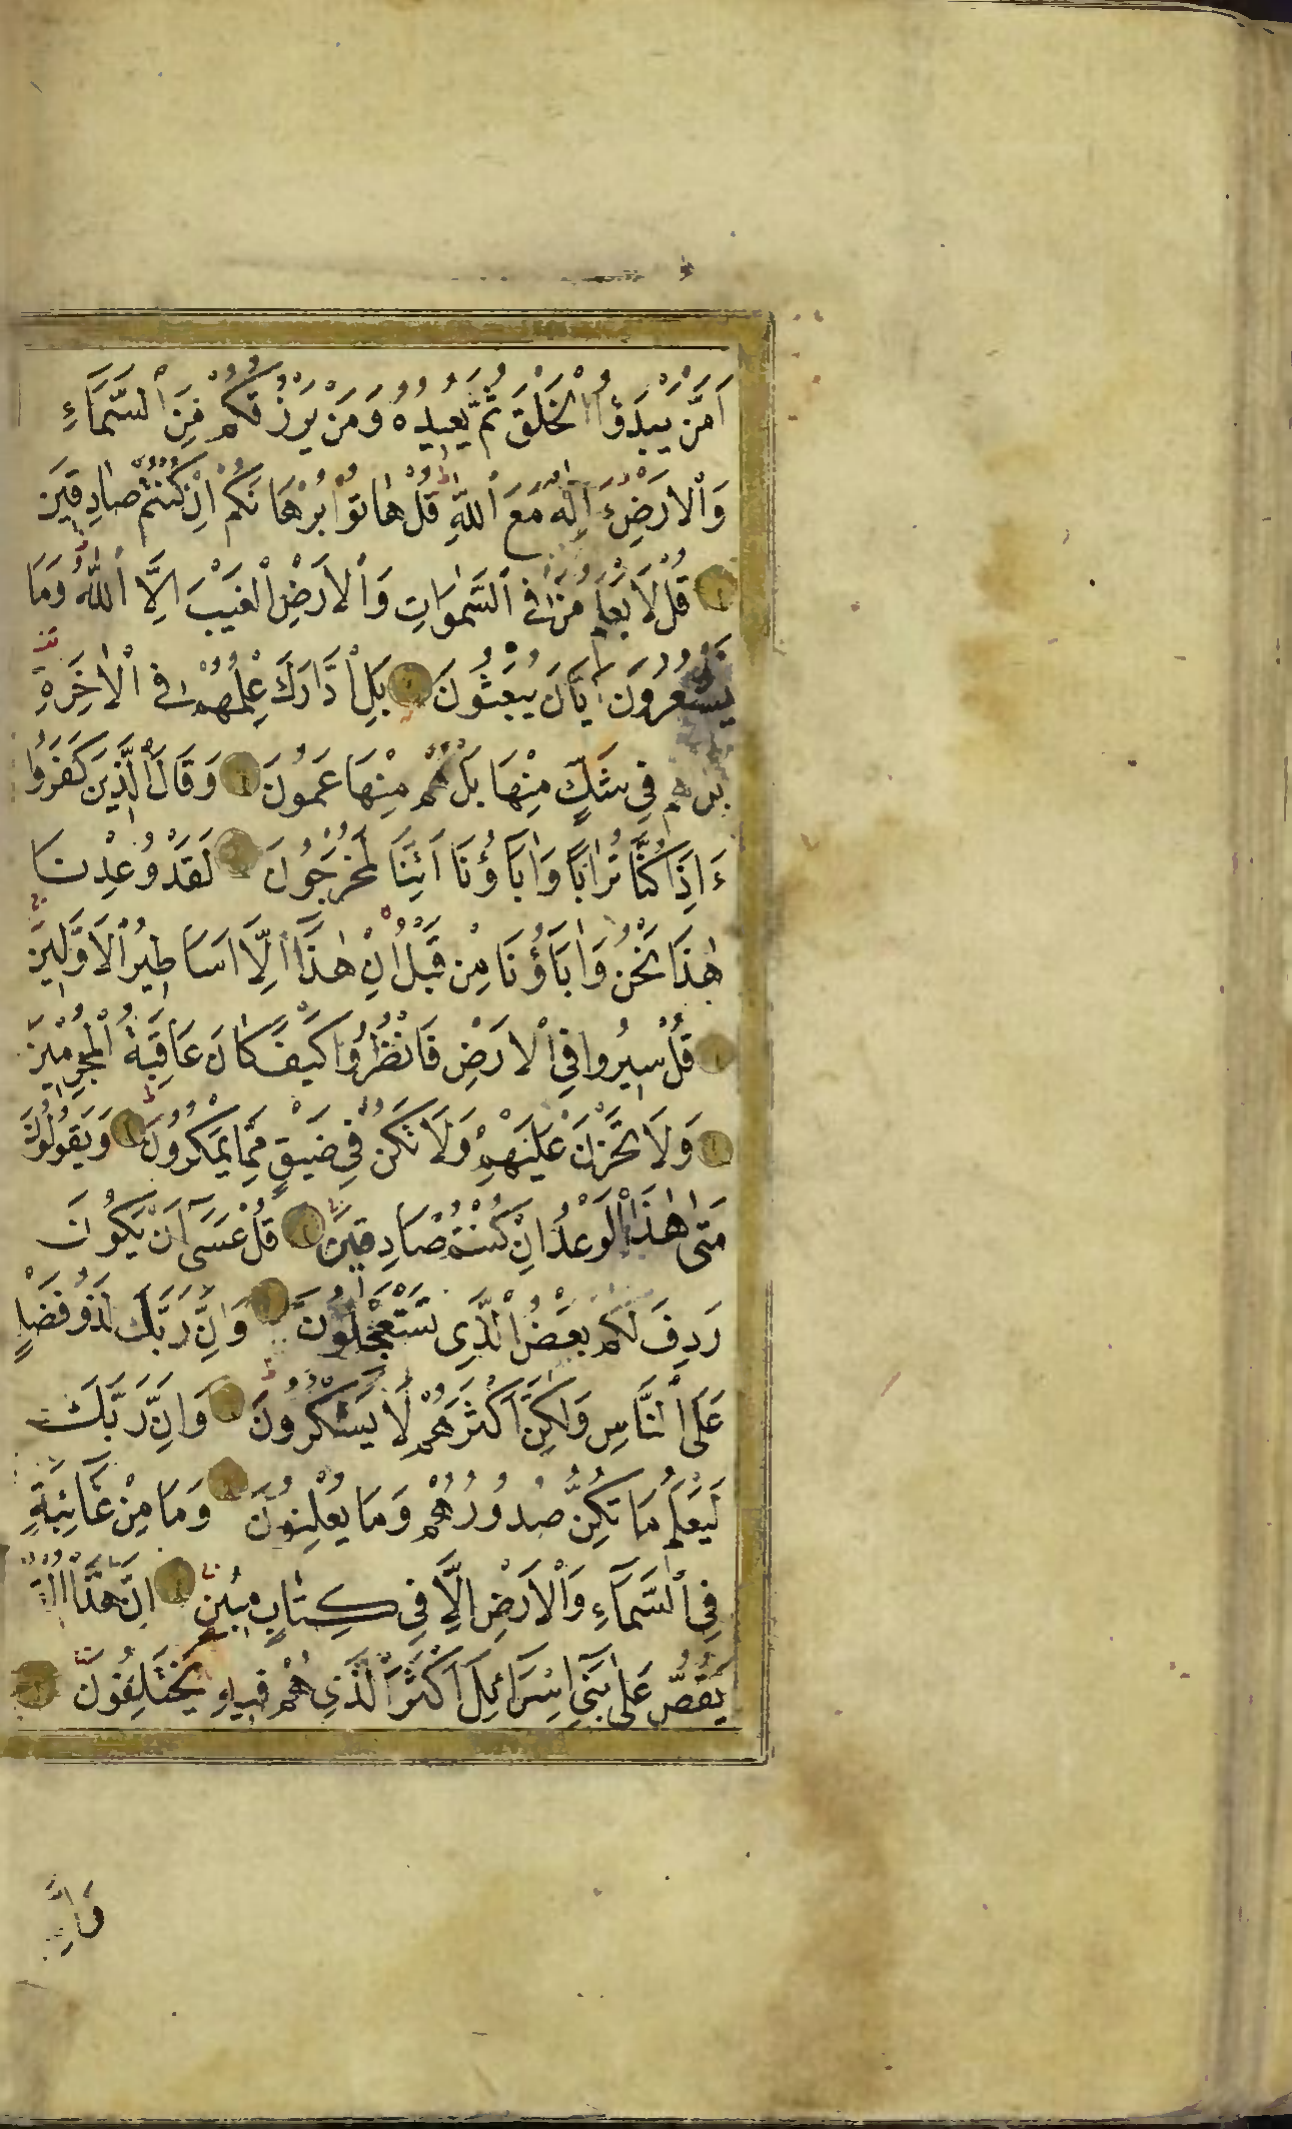 اَمَّنْ يَبْدَؤُا الْخَلْقَ ثُمَّ يُعِيدُهُ وَمَنْ يَرْزُقُكُمْ مِنَ السَّمَاءِ
وَالْاَرْضِ ءَاِلٰهٌ مَعَ اللّٰهِ قُلْ هَاتُوا بُرْهَانَكُمْ اِنْ كُنْتُمْ صَادِقِينَ
قُلْ لَا يَعْلَمُ مَنْ فِي السَّمٰوَاتِ وَالْاَرْضِ الْغَيْبَ اِلَّا اللّٰهُ وَمَا
يَشْعُرُونَ اَيَّانَ يُبْعَثُونَ بَلِ ادَّارَكَ عِلْمُهُمْ فِي الْاٰخِرَةِ
بَلْ هُمْ فِي شَكٍّ مِنْهَا بَلْ هُمْ مِنْهَا عَمُونَ وَقَالَ الَّذِينَ كَفَرُوا
ءَاِذَا كُنَّا تُرَابًا وَاٰبَاؤُنَا اَئِنَّا لَمُخْرَجُونَ لَقَدْ وُعِدْنَا
هٰذَا نَحْنُ وَاٰبَاؤُنَا مِنْ قَبْلُ اِنْ هٰذَا اِلَّا اَسَاطِيرُ الْاَوَّلِينَ
قُلْ سِيرُوا فِي الْاَرْضِ فَانْظُرُوا كَيْفَ كَانَ عَاقِبَةُ الْمُجْرِمِينَ
وَلَا تَحْزَنْ عَلَيْهِمْ وَلَا تَكُنْ فِي ضَيْقٍ مِمَّا يَمْكُرُونَ وَيَقُولُونَ
مَتٰى هٰذَا الْوَعْدُ اِنْ كُنْتُمْ صَادِقِينَ قُلْ عَسٰى اَنْ يَكُونَ
رَدِفَ لَكُمْ بَعْضُ الَّذِي تَسْتَعْجِلُونَ وَاِنَّ رَبَّكَ لَذُو فَضْلٍ
عَلَى النَّاسِ وَلٰكِنَّ اَكْثَرَهُمْ لَا يَشْكُرُونَ وَاِنَّ رَبَّكَ
لَيَعْلَمُ مَا تُكِنُّ صُدُورُهُمْ وَمَا يُعْلِنُونَ وَمَا مِنْ غَائِبَةٍ
فِي السَّمَاءِ وَالْاَرْضِ اِلَّا فِي كِتَابٍ مُبِينٍ اِنَّ هٰذَا
يَقُصُّ عَلٰى بَنِي اِسْرَائِلَ اَكْثَرَ الَّذِي هُمْ فِيهِ يَخْتَلِفُونَ
وَاِنَّ